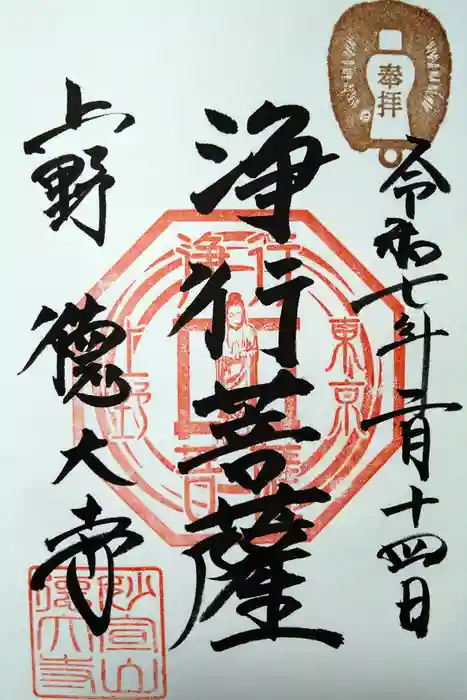 奉拝
令和七年二月十四日
浄行菩薩
上野 徳大寺
東京
上野
浄行菩薩
妙宣山
徳大寺